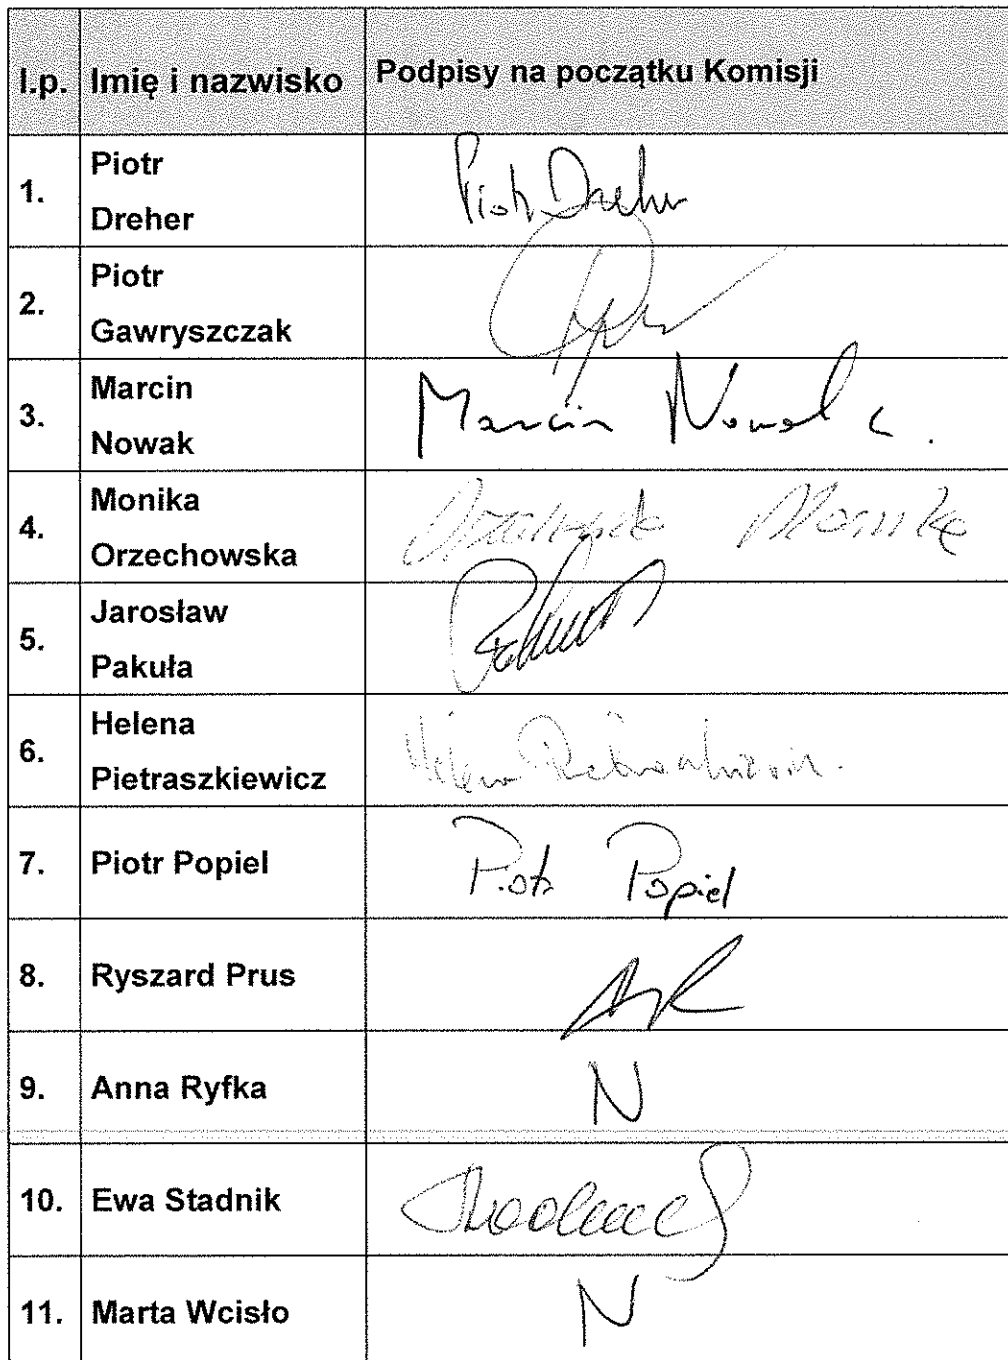 l.p. Imię i nazwisko Podpisy na początku Komisji
1. Piotr Dreher Piotr Dreher
2. Piotr Gawryszczak
3. Marcin Nowak Marcin Nowak
4. Monika Orzechowska Monika
5. Jarosław Pakuła
6. Helena Pietraszkiewicz Helena
7. Piotr Popiel Piotr Popiel
8. Ryszard Prus
9. Anna Ryfka N
10. Ewa Stadnik
11. Marta Wcisło N